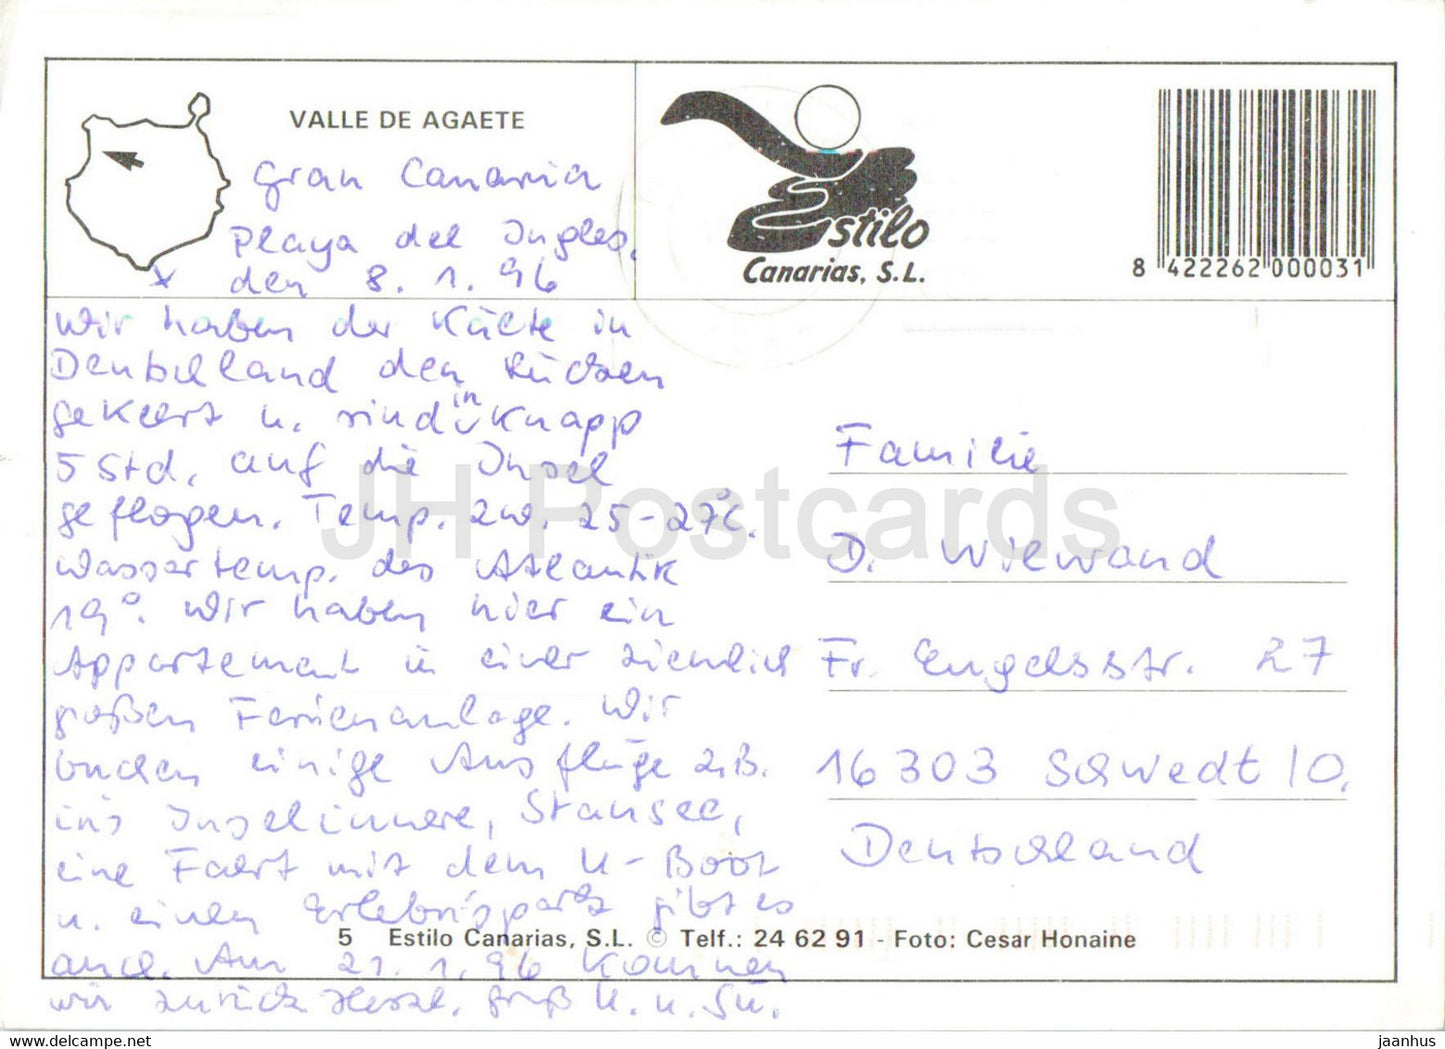 VALLE DE AGAETE
Gran Canaria
Playa del Ingles,
x den 8. 1. 96
Estilo
Canarias, S.L.
8 422262 000031
Wir haben der Kälte in
Deutschland den Rücken
gekehrt u. sind in knapp
5 Std. auf die Insel
geflogen. Temp. zw. 25-27°C.
Wassertemp. des Atlantik
19°. Wir haben hier ein
Appartement in einer ziemlich
großen Ferienanlage. Wir
buchen einige Ausflüge z.B.
ins Inselinnere, Stausee,
eine Fahrt mit dem U-Boot
u. einen Erlebnispark gibt es
auch. Am 21. 1. 96 kommen
wir zurück. Herzl. Gruß K. u. Su.
Familie
D. Wiewand
Fr. Engelsstr. 27
16303 Schwedt/O.
Deutschland
5 Estilo Canarias, S.L. © Telf.: 24 62 91 - Foto: Cesar Honaine
JH Postcards
www.delcampe.net
jaanhus